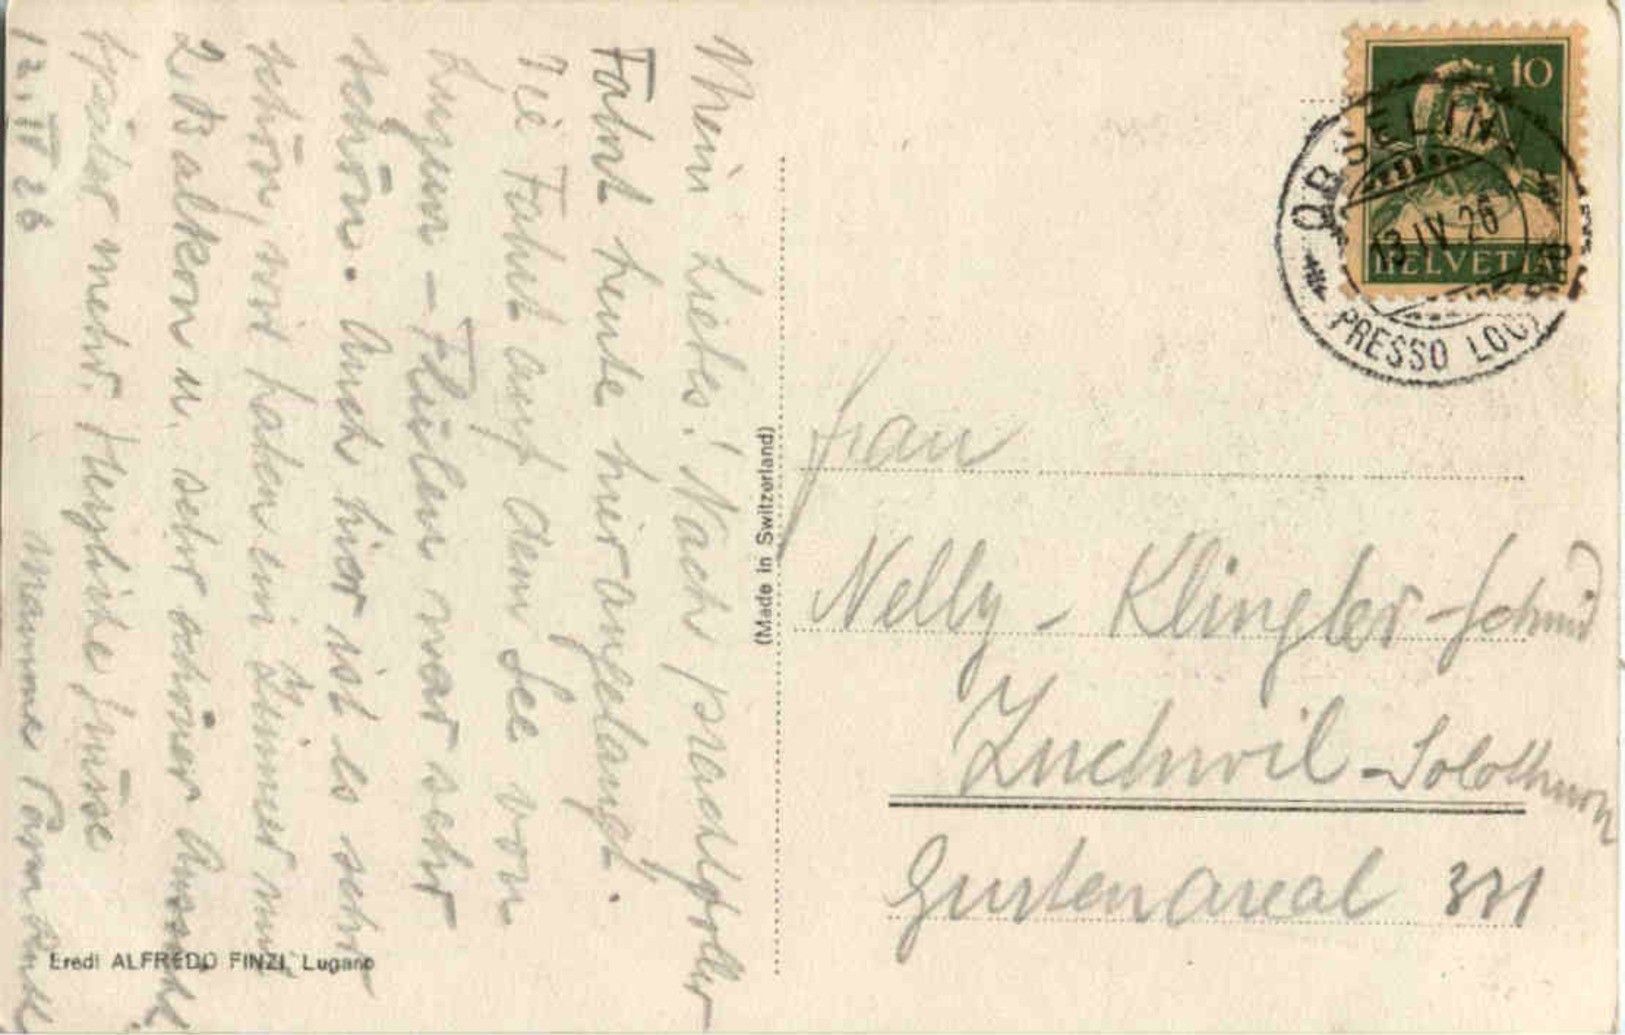 Mein Liebes! Nach prachtvoller
Fahrt heute hier angelangt.
Die Fahrt auf dem See von
Luzern - Flüelen war sehr
schön. Auch hier ist es sehr
schön, wir haben ein Zimmer mit
2 Balkon u. sehr schöner Aussicht
später mehr. Herzliche Grüsse
12. IV 26 Mamma
Eredi ALFREDO FINZI, Lugano
(Made in Switzerland)
10
HELVETIA
ORSELINA
13.IV.26
PRESSO LOCARNO
Frau
Nelly - Klingler - Schmid
Zuchwil - Solothurn
Gurtenareal 331